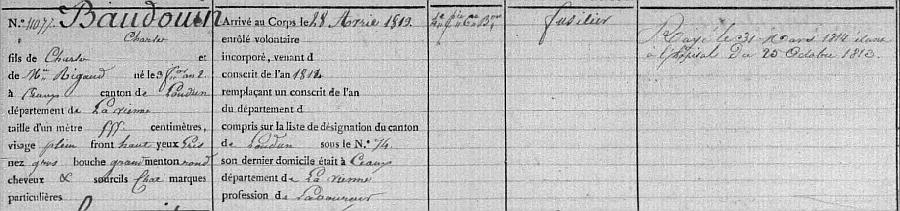 N.° 11077. Baudouin
Charles
fils de Charles et
de Mie Rigaud né le 3 an 2
à Ceaux canton de Loudun
département de La vienne
taille d'un mètre 555 centimètres,
visage plein front haut yeux gris
nez gros bouche grand menton rond
cheveux & sourcils Chat marques
particulières
Arrivé au Corps le 28 Avril 1813.
enrôlé volontaire
incorporé, venant d
conscrit de l'an 1814
remplaçant un conscrit de l'an
du département d
compris sur la liste de désignation du canton
de Loudun sous le N.° 74.
son dernier domicile était à Ceaux
département de La vienne
profession de Laboureur
4e Cie 4e Bon
fusilier
Rayé le 31 mars 1814 étant
à l'hôpital Du 25 Octobre 1813.